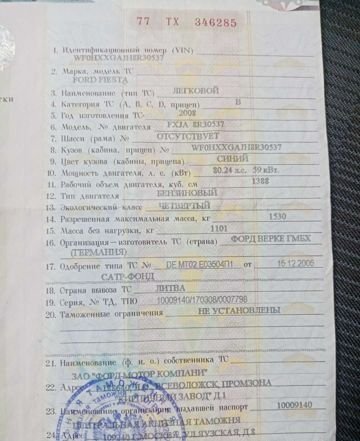 77 ТХ 346285
1. Идентификационный номер (VIN)
WF0HXXGAJH8R30537
2. Марка, модель ТС
FORD FIESTA
3. Наименование (тип ТС) ЛЕГКОВОЙ
4. Категория ТС (A, B, C, D, прицеп) B
5. Год изготовления ТС 2008
6. Модель, № двигателя FXJA 8R30537
7. Шасси (рама) № ОТСУТСТВУЕТ
8. Кузов (кабина, прицеп) № WF0HXXGAJH8R30537
9. Цвет кузова (кабина, прицепа) СИНИЙ
10. Мощность двигателя, л. с. (кВт) 80.24 л.с. 59 кВт.
11. Рабочий объем двигателя, куб. см 1388
12. Тип двигателя БЕНЗИНОВЫЙ
13. Экологический класс ЧЕТВЕРТЫЙ
14. Разрешенная максимальная масса, кг 1530
15. Масса без нагрузки, кг 1101
16. Организация – изготовитель ТС (страна) ФОРД ВЕРКЕ ГМБХ
(ГЕРМАНИЯ)
17. Одобрение типа ТС № DE MT02 E03504П1 от 15.12.2005
САТР-ФОНД
18. Страна вывоза ТС ЛИТВА
19. Серия, № ТД, ТПО 10009140/170308/0007798
20. Таможенные ограничения НЕ УСТАНОВЛЕНЫ
21. Наименование (ф. и. о.) собственника ТС
ЗАО "ФОРД МОТОР КОМПАНИ"
22. Адрес ВСЕВОЛОЖСК, ПРОМЗОНА
"КИРПИЧНЫЙ ЗАВОД" Д.1
23. Наименование организации, выдавшей паспорт 10009140
ЦЕНТРАЛЬНАЯ АКЦИЗНАЯ ТАМОЖНЯ
24. Г.МОСКВА УЛ.ЯУЗСКАЯ, Д.8